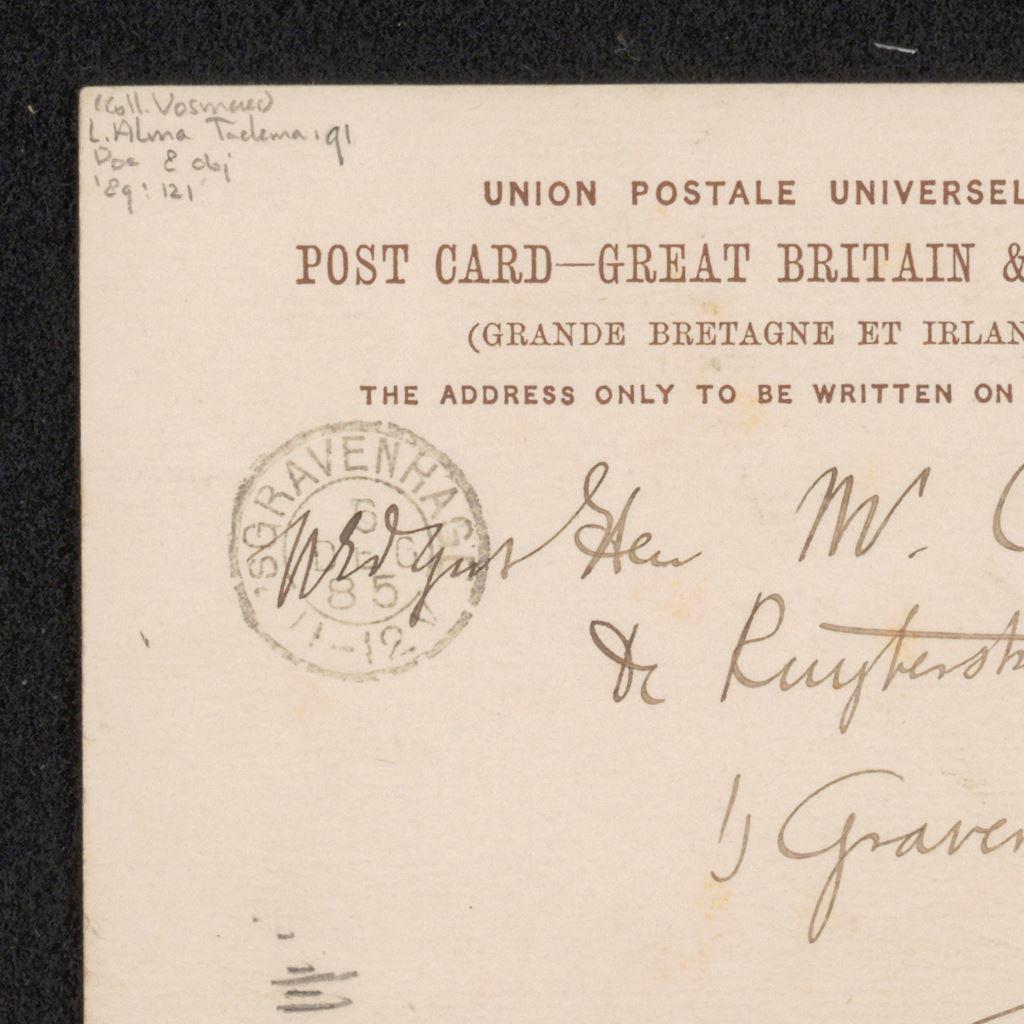 (Coll. Vosmaer)
L. Alma Tadema: 91
Doc & obj
UNION POSTALE UNIVERSEL
POST CARD—GREAT BRITAIN &
(GRANDE BRETAGNE ET IRLAN
THE ADDRESS ONLY TO BE WRITTEN ON
'SGRAVENHAGE
6
DEC
85
11-12V
WEdgest Heer Mr. C
de Ruyterstr
'S Graven